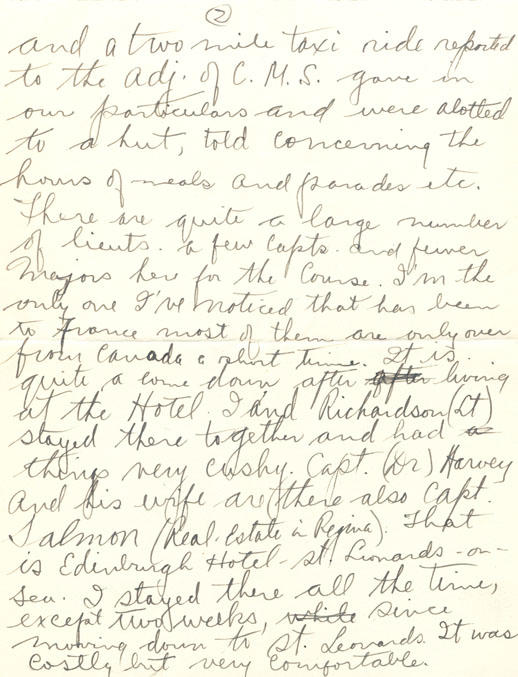 (2)
and a two mile taxi ride reported
to the adj. of C. M. S. gave in
our particulars and were alotted
to a hut, told concerning the
hours of meals and parades etc.
There are quite a large number
of lieuts. a few capts. and fewer
Majors here for the Course. I'm the
only one I've noticed that has been
to France most of them are only over
from Canada a short time. It is
quite a come down after after living
at the Hotel. I and Richardson (Lt)
stayed there together and had a
things very cushy. Capt. (Dr) Harvey
and his wife are there also Capt.
Salmon (Real Estate in Regina). That
is Edinburgh Hotel - St. Leonards-on-
Sea. I stayed there all the time,
except two weeks, while since
moving down to St. Leonards. It was
costly but very comfortable.